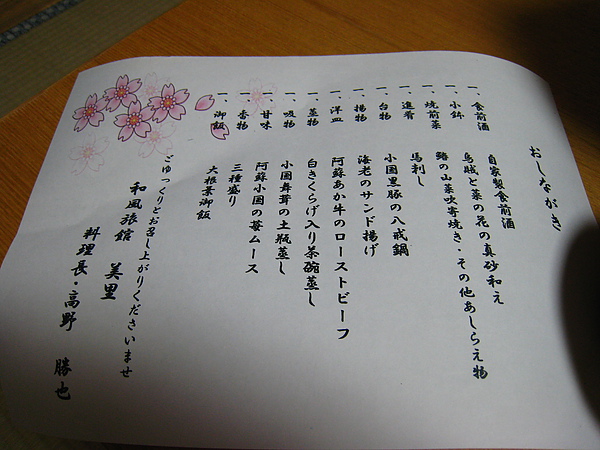 おしながき
一、食前酒 自家製食前酒
一、小鉢 烏賊と菜の花の真砂和え
一、焼前菜 鮨の山菜吹寄焼き・その他あしらえ物
一、進肴 馬刺し
一、台物 小国黒豚の八戒鍋
一、揚物 海老のサンド揚げ
一、洋皿 阿蘇あか牛のローストビーフ
一、蒸物 白きくらげ入り茶碗蒸し
一、吸物 小国舞茸の土瓶蒸し
一、甘味 阿蘇小国の苺ムース
一、香物 三種盛り
一、御飯 大根葉御飯
ごゆっくりとお召し上がりくださいませ
和風旅館 美里
料理長・高野 勝也